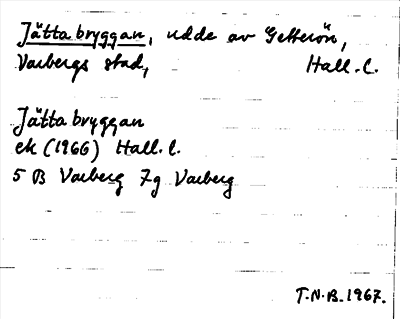 Jättabryggan, udde av Getterön,
Varbergs stad, Hall. l.
Jättabryggan
ek (1966) Hall. l.
5 B Varberg 7g Varberg
T.N.B. 1967.